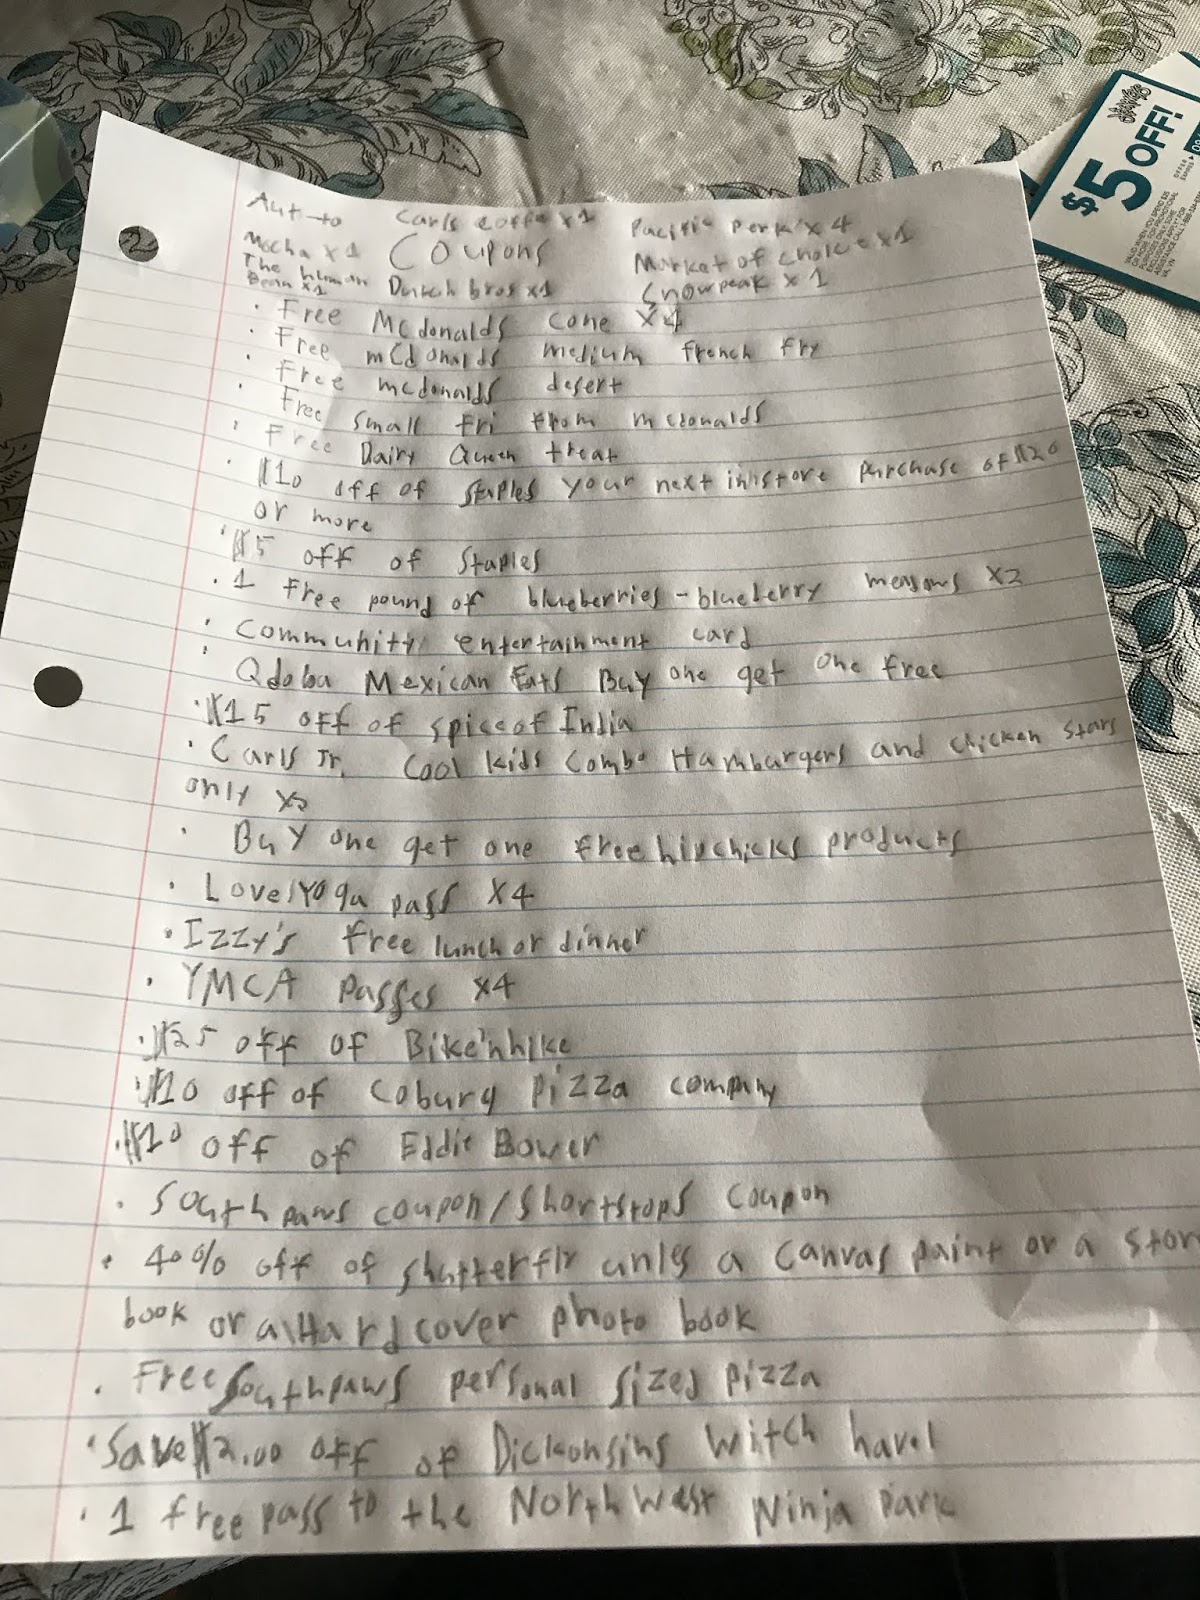 Aut-to Carls coffe x1 Pacific perk x4
Mocha x1 Coupons Market of choice x1
The human Bean x1 Dutch bros x1 Snowpeak x1
· Free Mcdonalds cone x4
· Free mcdonalds medium french fry
· Free mcdonalds desert
· Free small fri from mcdonalds
· Free Dairy Queen treat
· $10 off of staples your next in store purchase of $20
or more
· $5 off of Staples
· 1 free pound of blueberries - blueberry meadows x2
· Community entertainment card
· Qdoba Mexican Eats Buy one get one free
· $15 off of spice of India
· Carls Jr. Cool kids Combo Hamburgers and chicken stars
only x2
· Buy one get one free hipchicks products
· Lovelyoga pass x4
· Izzy's free lunch or dinner
· YMCA passes x4
· $25 off of Bike'nhike
· $10 off of Coburg pizza company
· $10 off of Eddie Bower
· South paws coupon/shortstops coupon
· 40% off of shutterfly unles a canvas paint or a stor
book or a Hard cover photo book
· Free Southpaws personal sized pizza
· Save $2.00 off of Dickonsins witch havel
· 1 free pass to the North west Ninja park
$5 OFF!